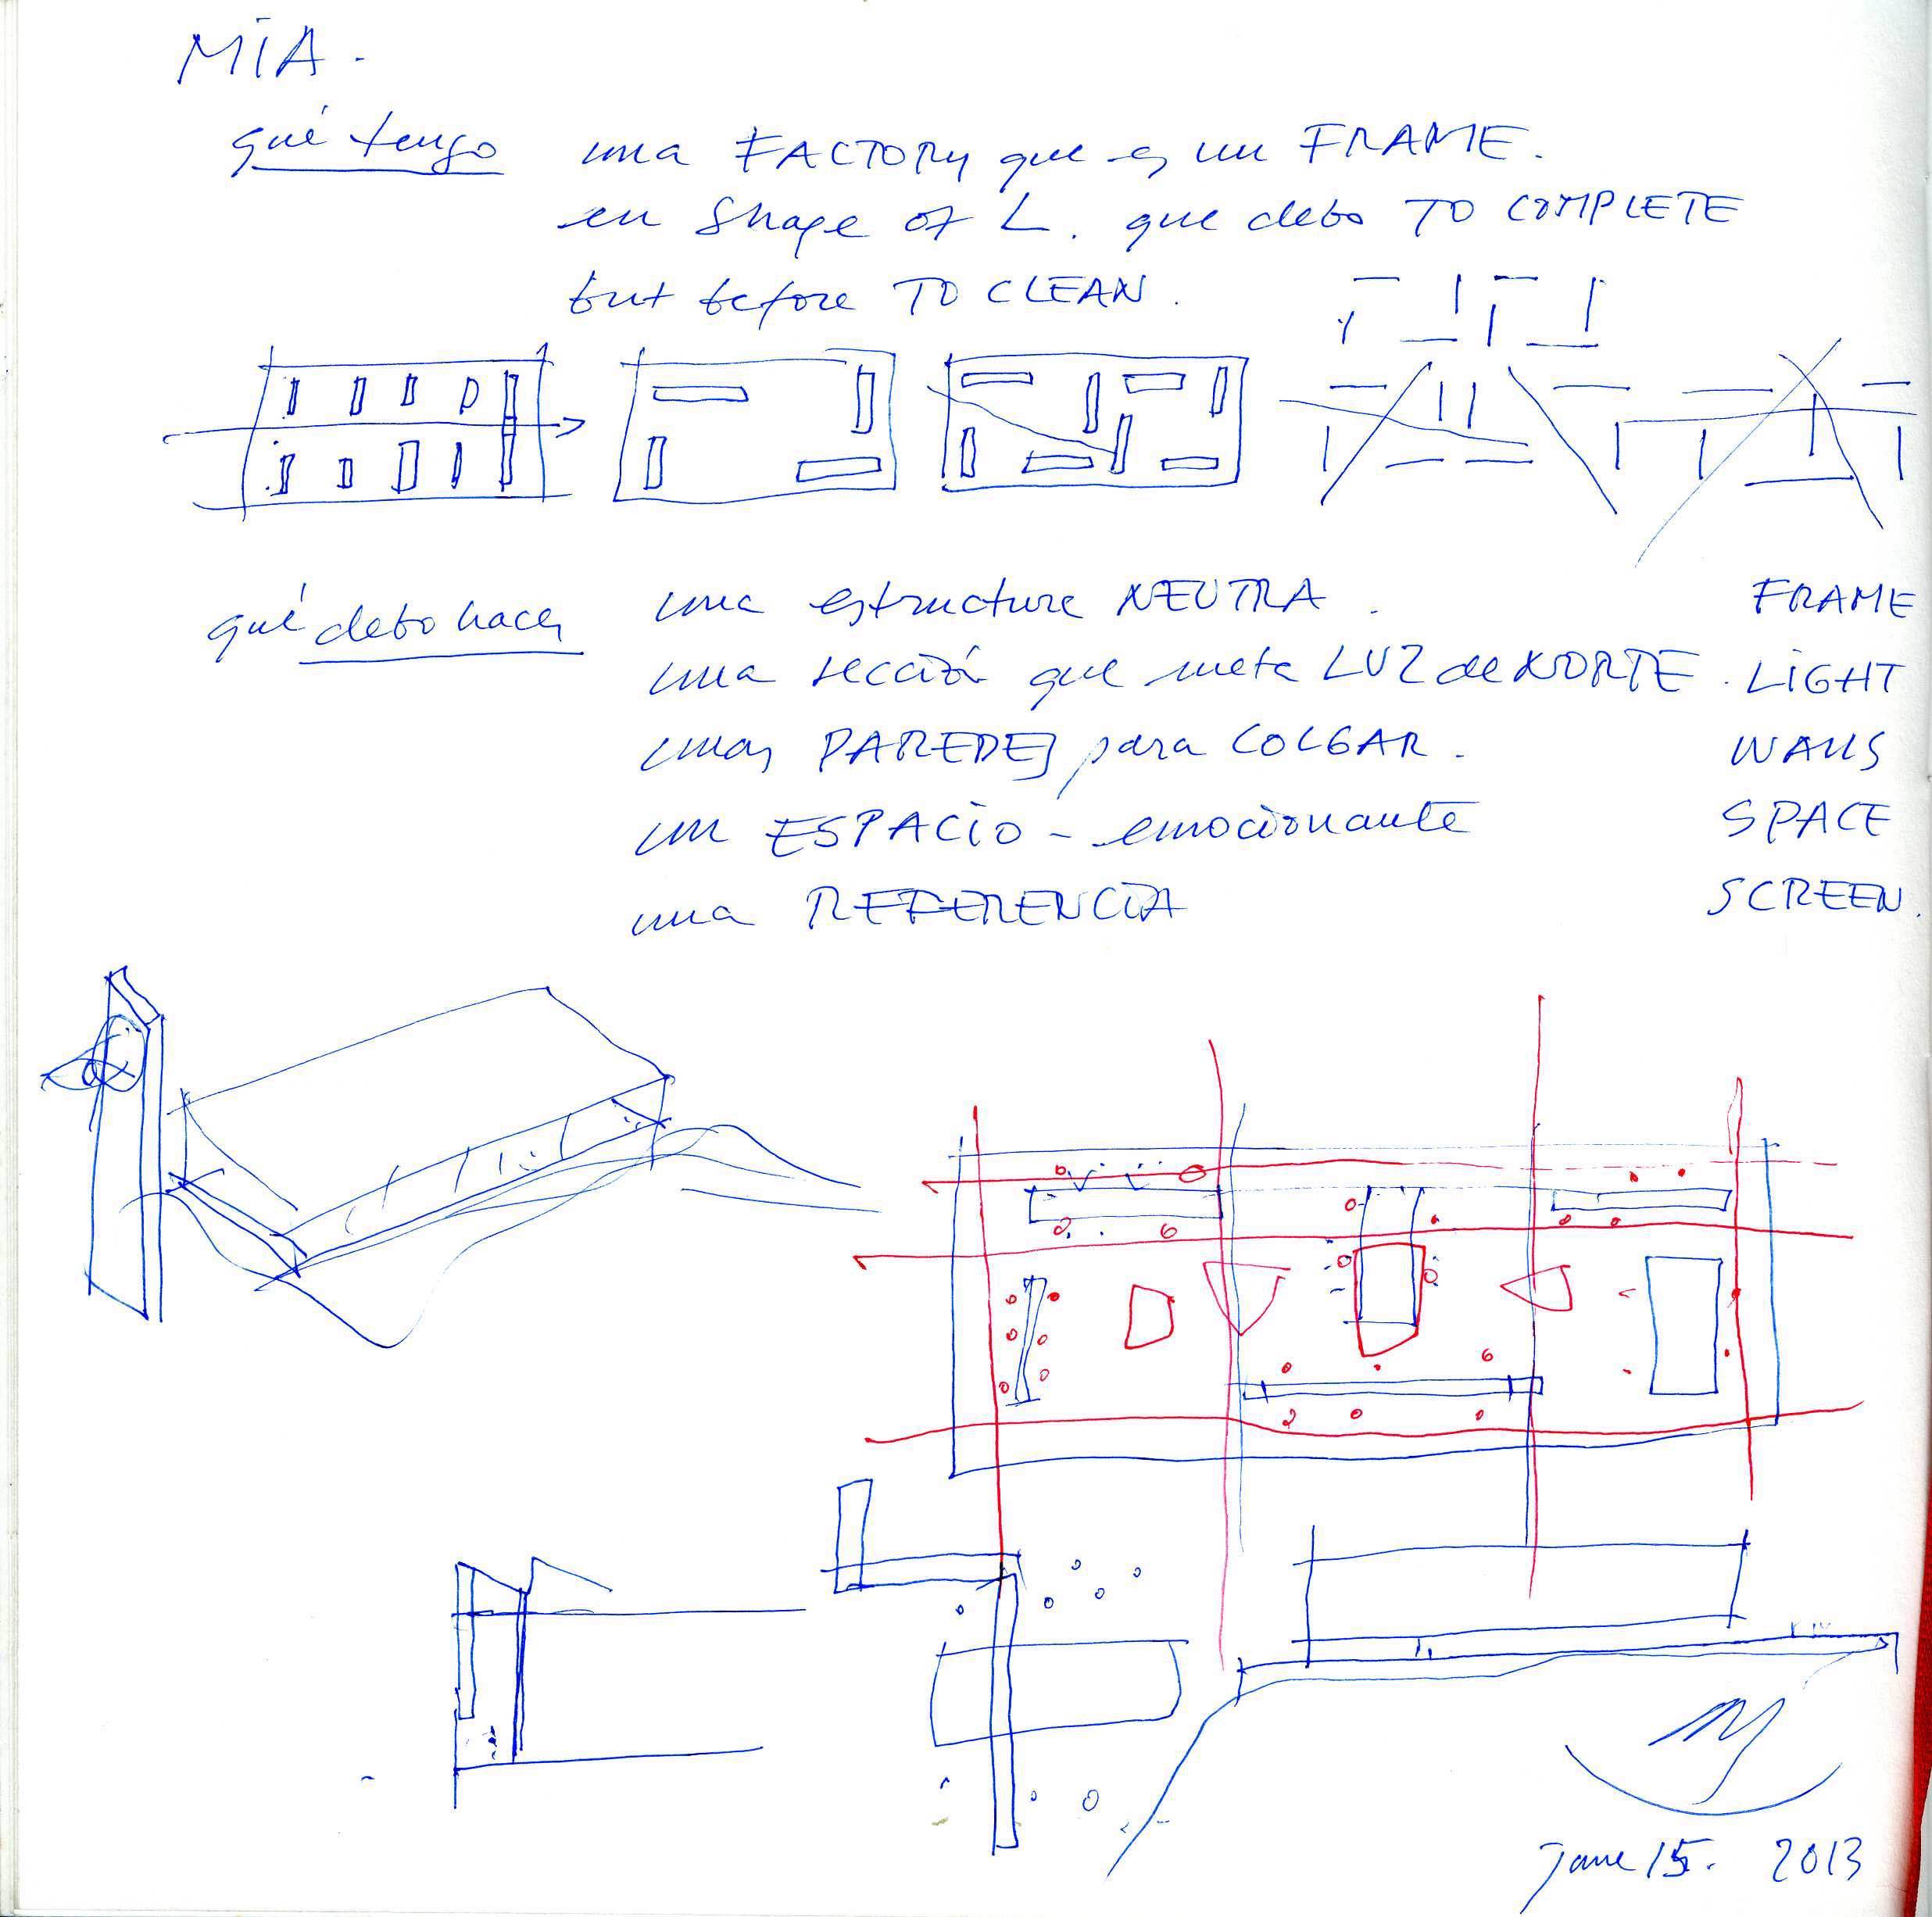 MIA.
qué tengo una FACTORY que es un FRAME.
en shape of L. que debo TO COMPLETE
but before TO CLEAN.
qué debo hacer una estructura NEUTRA. FRAME
una sección que meta LUZ de NORTE. LIGHT
unas PAREDES para COLGAR. WALLS
un ESPACIO - emocionante SPACE
una REFERENCIA SCREEN.
June 15. 2013